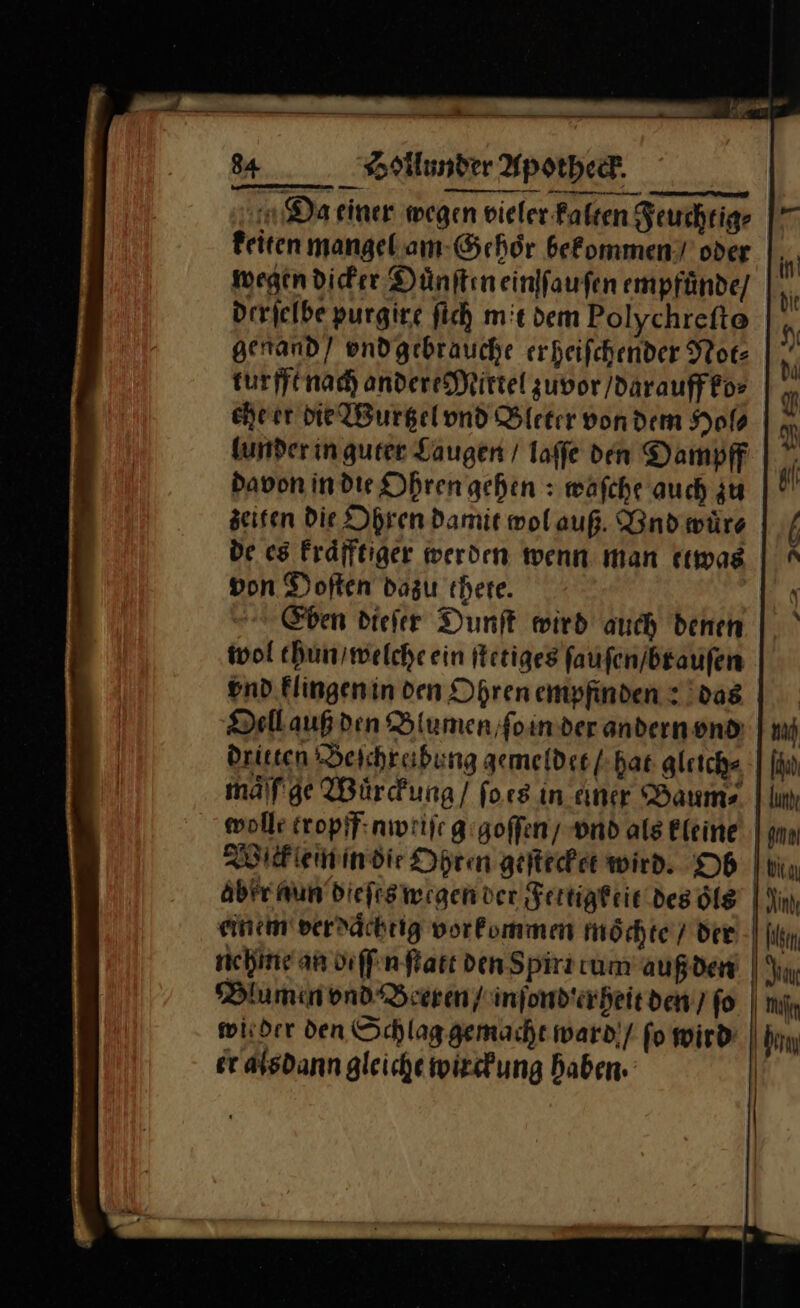 84 Hollunder Apotheck.
Da einer wegen vieler kalten Feuchtig⸗
keiten mangel am Gehoͤr bekommen / oder
wegen dicker Duͤnsten ein sausen empfuͤnde /
derselbe purgire sich mit dem Polychresto
genand / vnd gebrauche erheischender Not⸗
turfft nach andere Mittel zuvor / darauff ko⸗
che er die Wurtzel vnd Bleter von dem Hol⸗
lunder in guter Laugen / lasse den Dampff
davon in die Ohren gehen : wasche auch zu
zeiten die Ohren damit wol auß. Vnd wuͤr⸗
de es kraͤfftiger werden wenn man etwas
von Dosten dazu thete.
Eben dieser Dunst wird auch denen
wol thun / welche ein stetiges sausen / brausen
vnd klingen in den Ohren empfinden : das
Oell auß den Blumen / so in der andern vnd
dritten Beschreibung gemeldet / hat gleich⸗
maͤss'ge Wuͤrckung / so es in einer Baum⸗
wolle tropffenweise gegossen / vnd als kleine
Wicklein in die Ohren gestecket wird. Ob
aber nun dieses wegen der Fettigkeit des oͤls
einem verdaͤchtig vorkommen moͤchte / der
nehme an dessen statt den Spiritum auß den
Blumen vnd Beeren / insond'erheit den / so
wieder den Schlag gemacht ward / so wird
er alsdann gleiche wirckung haben.